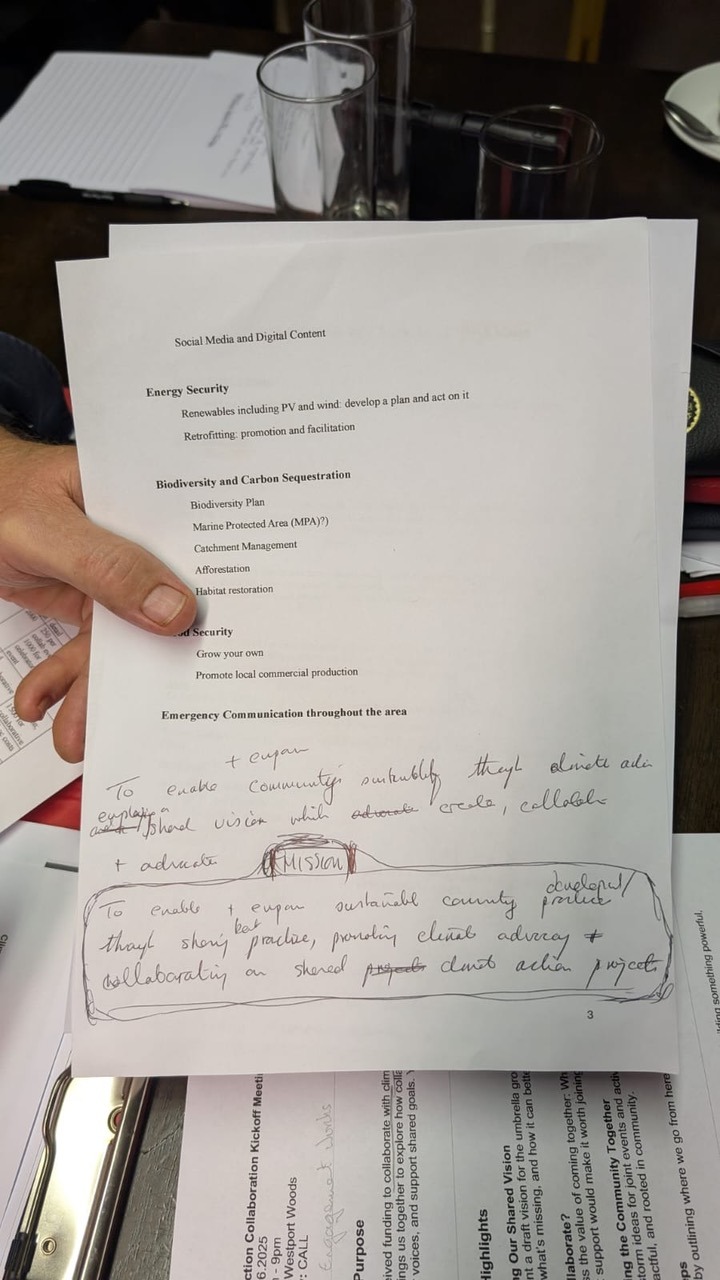 Social Media and Digital Content
Energy Security
Renewables including PV and wind: develop a plan and act on it
Retrofitting: promotion and facilitation
Biodiversity and Carbon Sequestration
Biodiversity Plan
Marine Protected Area (MPA)?)
Catchment Management
Afforestation
Habitat restoration
Security
Grow your own
Promote local commercial production
Emergency Communication throughout the area
+
To enable community's sustainability through climate
shared vision which advocate create, collaborate
+ advocate
MISSION
To enable + sustainable community development/
practice
through sharing best practice, promoting climate advocacy +
collaborating on shared projects climate action projects
3
ction Collaboration Kickoff Meeti
6.2025
- 9pm
Westport Woods
: CALL
Engagement Works
Purpose
ived funding to collaborate with clim
ngs us together to explore how colla
voices, and support shared goals.
ighlights
g Our Shared Vision
nt a draft vision for the umbrella gro
what's missing, and how it can bette
aborate?
s the value of coming together: Wh
support would make it worth joining
ng the Community Together
torm ideas for joint events and acti
ctful, and rooted in community.
ps
by outlining where we go from here
lding something powerful.